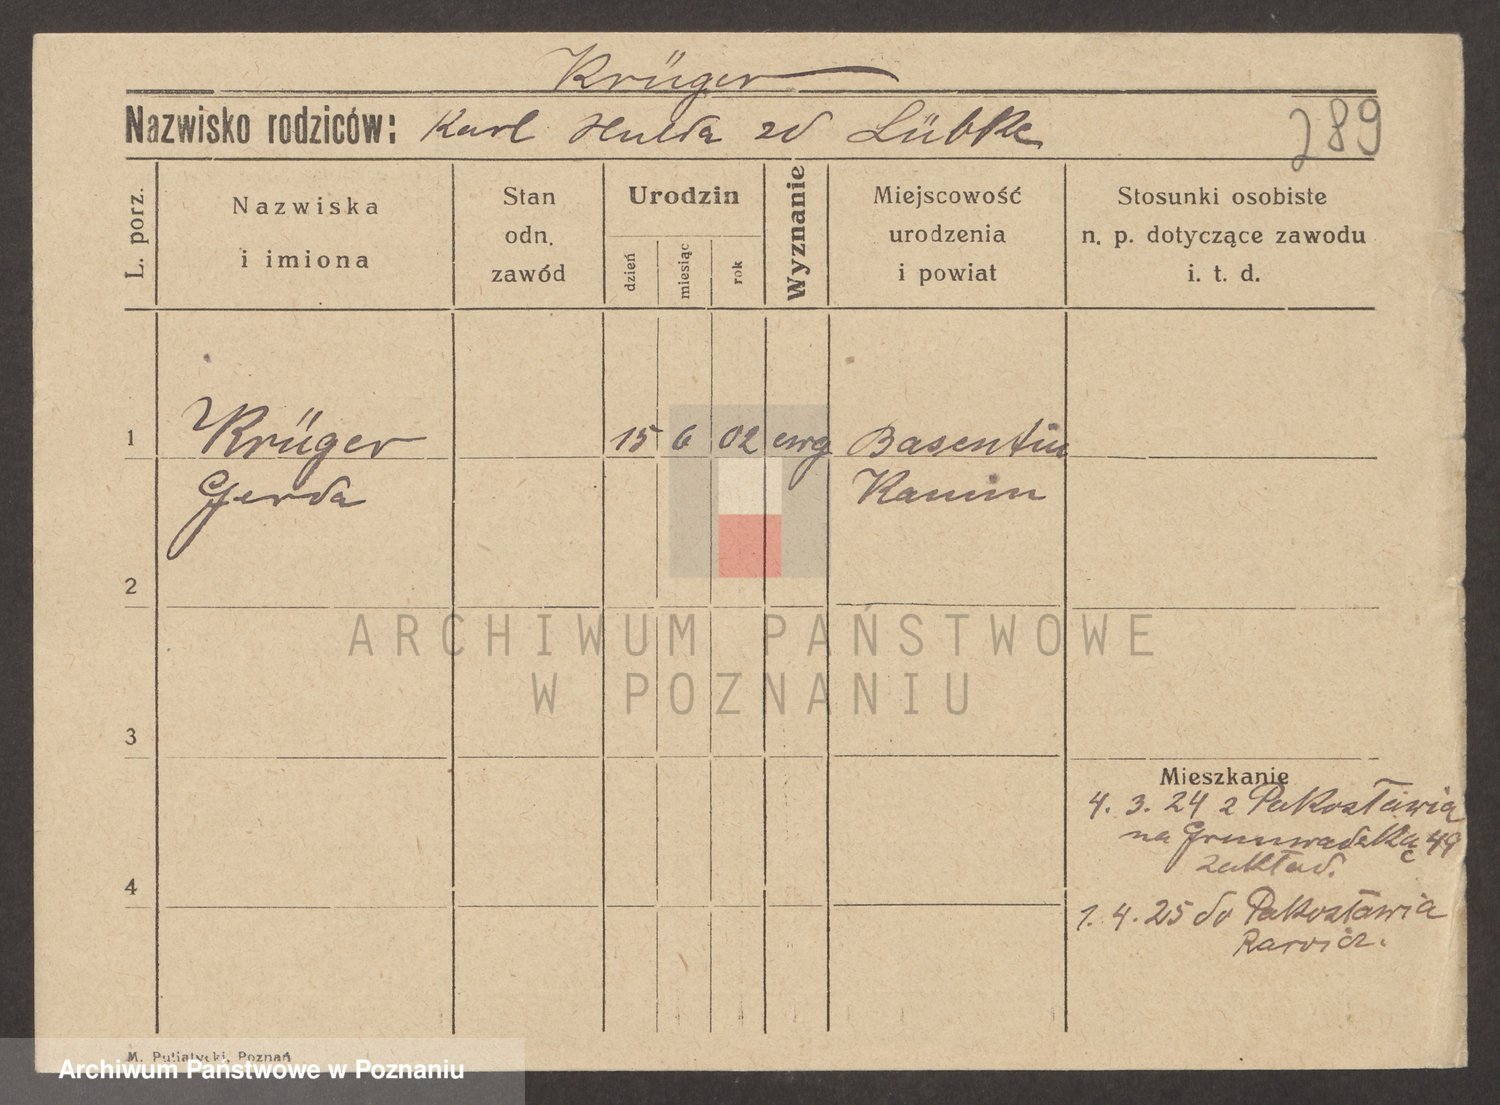 Krüger
Nazwisko rodziców: Karl Hulda zd Lübke
289
L. porz.
Nazwiska
i imiona
Stan
odn.
zawód
Urodzin
dzień
miesiąc
rok
Wyznanie
Miejscowość
urodzenia
i powiat
Stosunki osobiste
n. p. dotyczące zawodu
i. t. d.
1 Krüger 15 6 02 ewg Basentin
Gerda Kamin
2
ARCHIWUM PAŃSTWOWE
W POZNANIU
3
Mieszkanie
4. 3. 24 z Pakosławia
na Grunwadzką 49
zakład.
4
1. 4. 25 do Pakosławia
Rawicz.
M. Putiatycki, Poznań
Archiwum Państwowe w Poznaniu